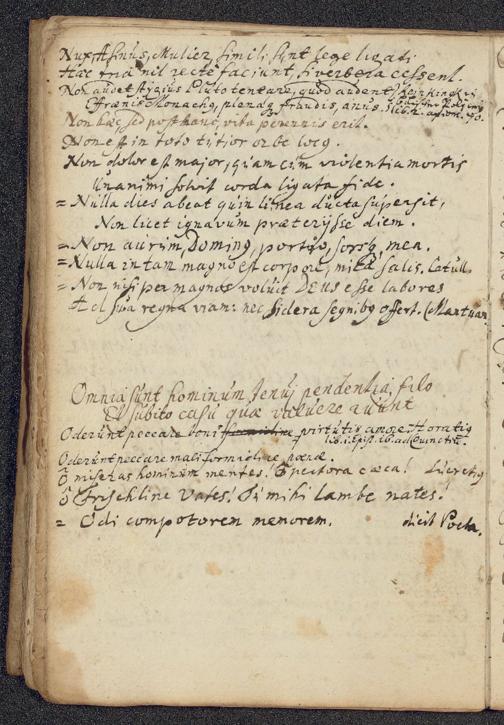 Nux, Asinus, Mulier simili sunt lege ligati
Hæc tria nil recte faciunt, si verbera cessent.
Non audet stygius Pluto tentare, quod audent
Effrænis Monachus, plenaque fraudis, anus.
Non hæc, sed post hanc, vita perennis erit.
Non est in toto tutior orbe locus.
Non dolor est major, quam cum violentia mortis
Unanimi solvit corda ligata fide.
= Nulla dies abeat quin linea ducta supersit,
Non licet ignavum præterijsse diem.
= Non aurum, Dominus, portio, sorsque, mea.
= Nulla in tam magno est corpore, mica salis. Catull.
= Non nisi per magnos voluit DEus esse labores
Ad sua regna viam: nec sidera segnibus offert. (Mantuan.
Omnia sunt hominum tenuj pendentia filo
Et subito casu quæ valuere ruunt
Oderunt peccare boni formidine virtutis amore. Horatius
lib. 1. Epist. 16. ad Quinctiu.
Oderunt peccare mali formidine pœnæ.
O miseras hominum mentes! O pectora cæca! Lucretius
O Frischline Vates! Tu mihi lambe nates!
= Odi compotorem memorem. dicit Poeta.